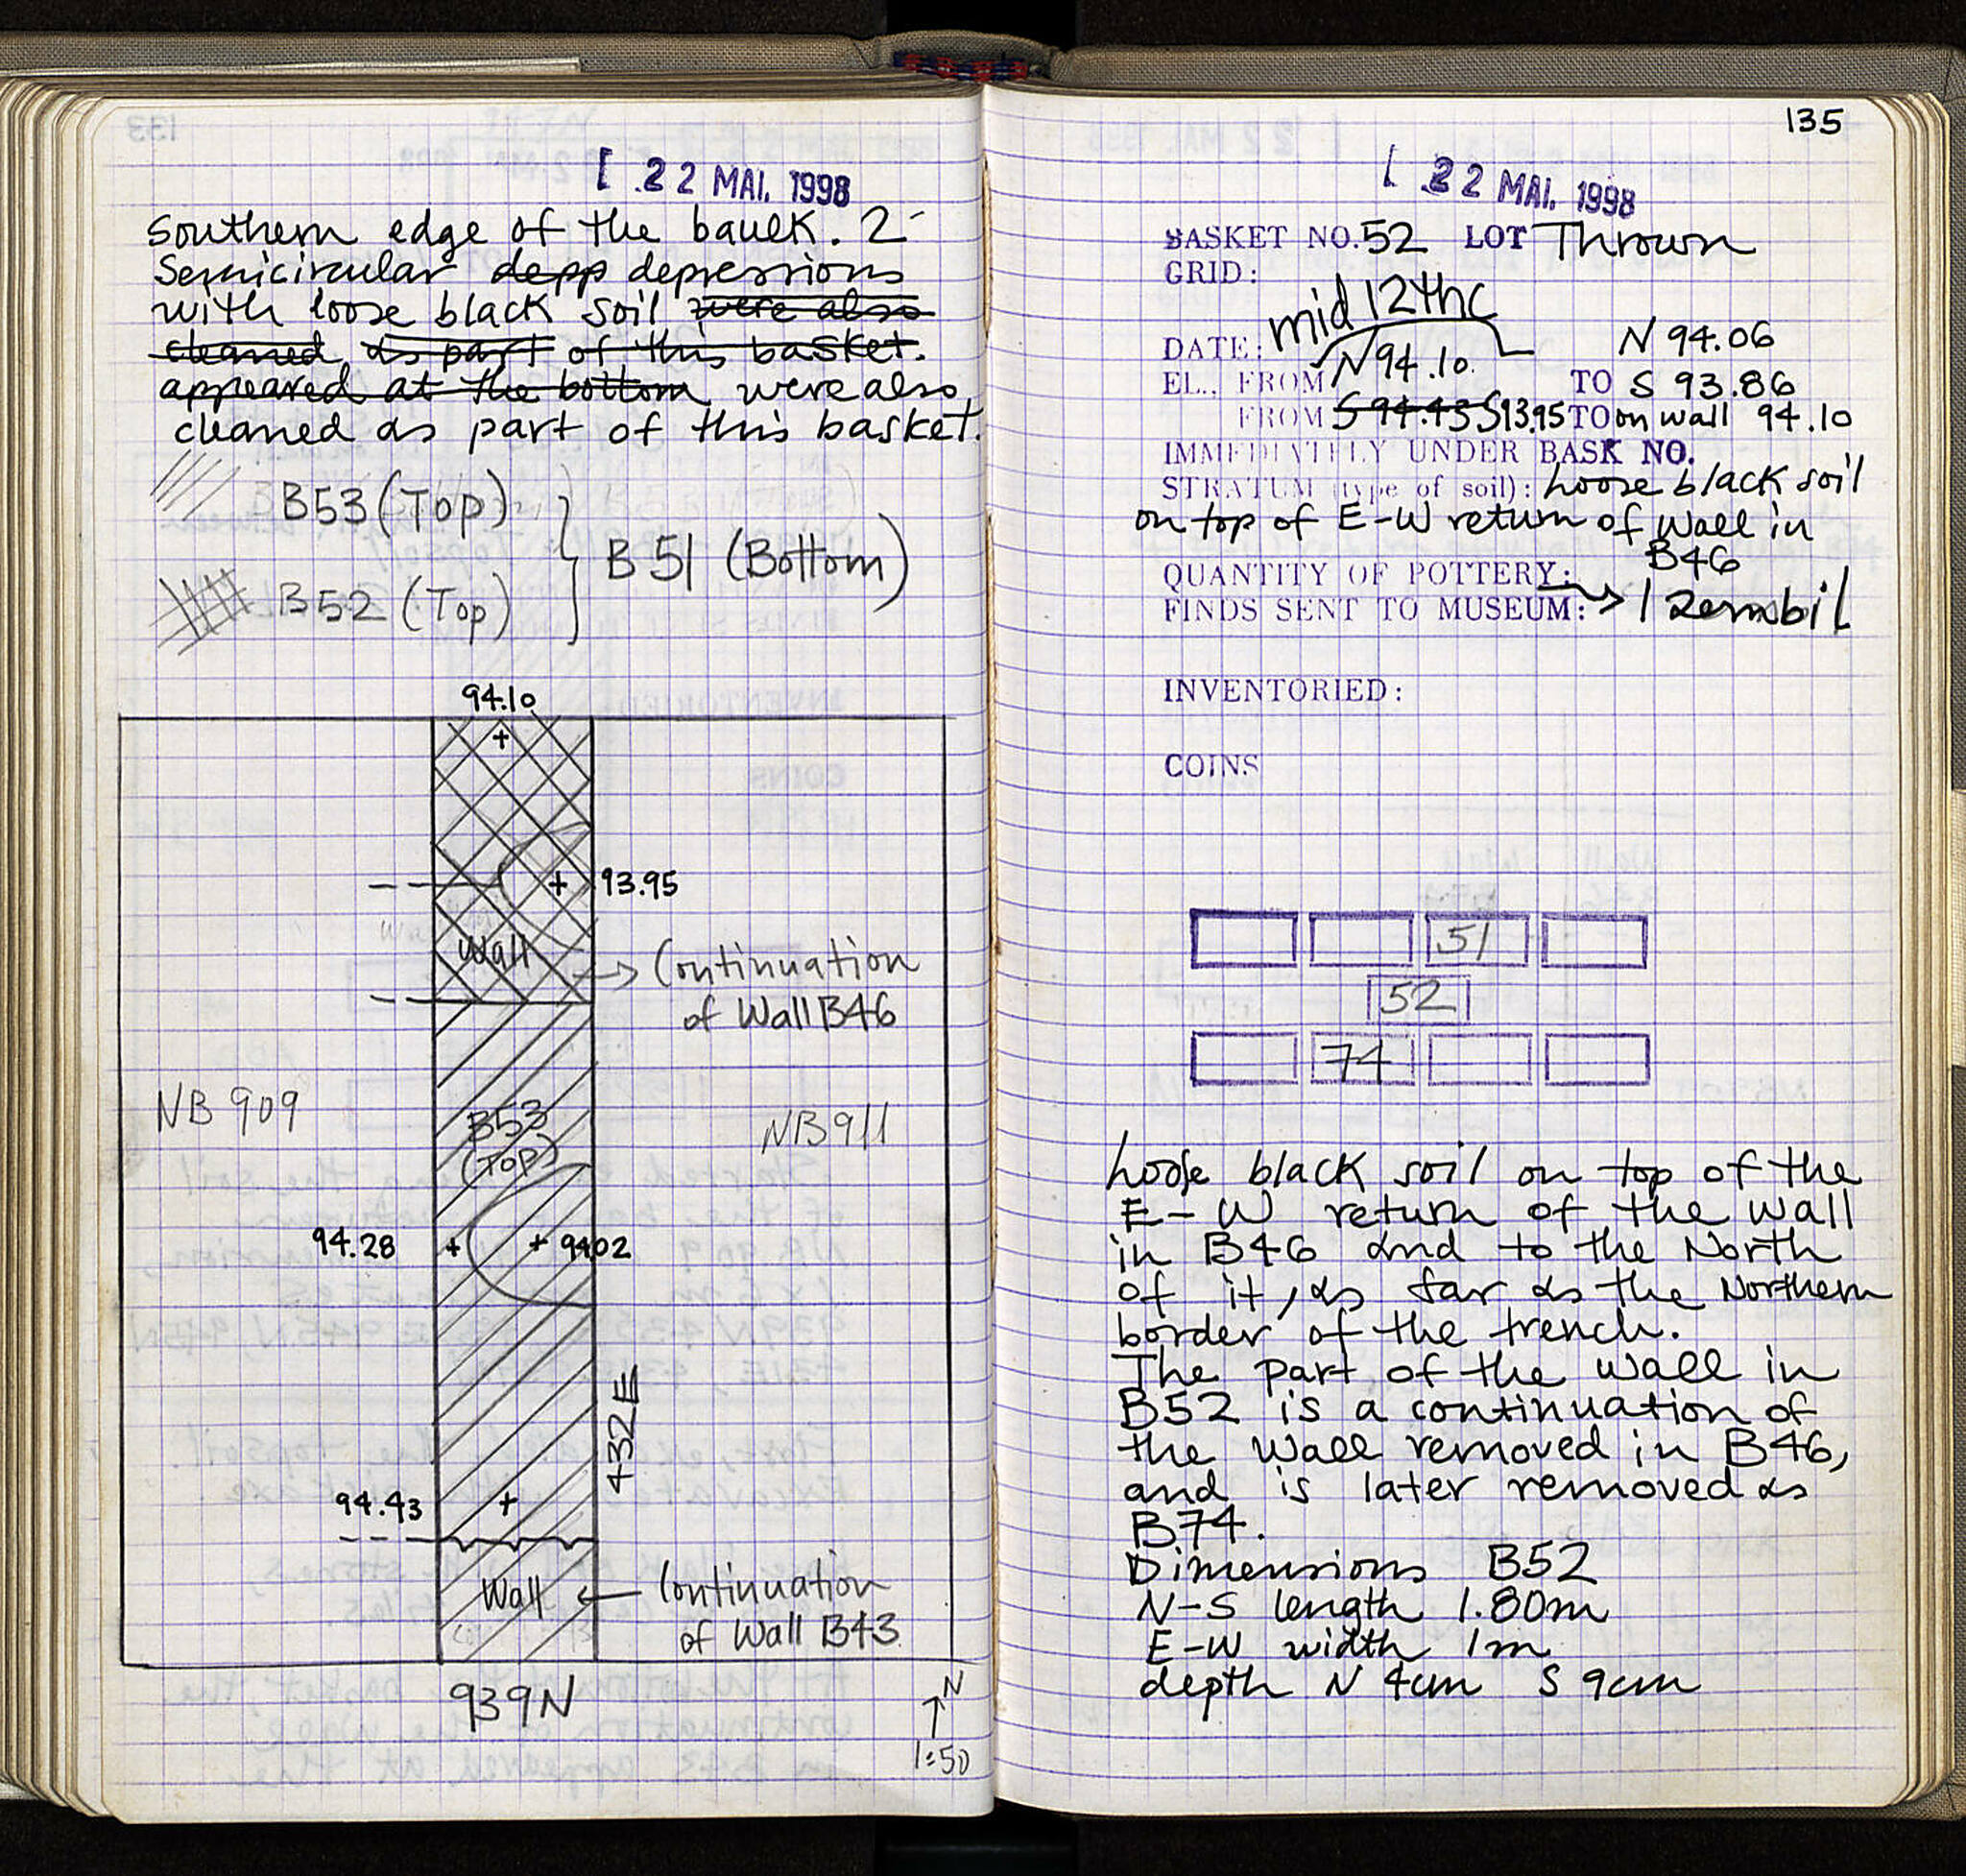 22 MAI. 1998
Southern edge of the baulk. 2
Semicircular depp depressions
with loose black soil were also
cleaned as part of this basket.
appeared at the bottom were also
cleaned as part of this basket.
B53 (Top)
B51 (Bottom)
B52 (Top)
94.10
93.95
Wall
Continuation
of Wall B46
NB 909
B53
(Top)
NB 911
94.28
94.02
432E
94.43
Wall
Continuation
of Wall B43
939N
N
1:50
135
22 MAI. 1998
BASKET NO. 52 LOT Thrown
GRID:
mid 12thc
DATE: N 94.06
EL., FROM N 94.10 TO S 93.86
FROM S 94.43 S 93.95 TO on wall 94.10
IMMEDIATELY UNDER BASK NO.
STRATUM (type of soil): Loose black soil
on top of E-W return of wall in
B46
QUANTITY OF POTTERY:
FINDS SENT TO MUSEUM: 1 zembil
INVENTORIED:
COINS
51
52
74
Loose black soil on top of the
E-W return of the wall
in B46 and to the North
of it, as far as the Northern
border of the trench.
The part of the wall in
B52 is a continuation of
the wall removed in B46,
and is later removed as
B74.
Dimensions B52
N-S length 1.80m
E-W width 1m
depth N 4cm S 9cm